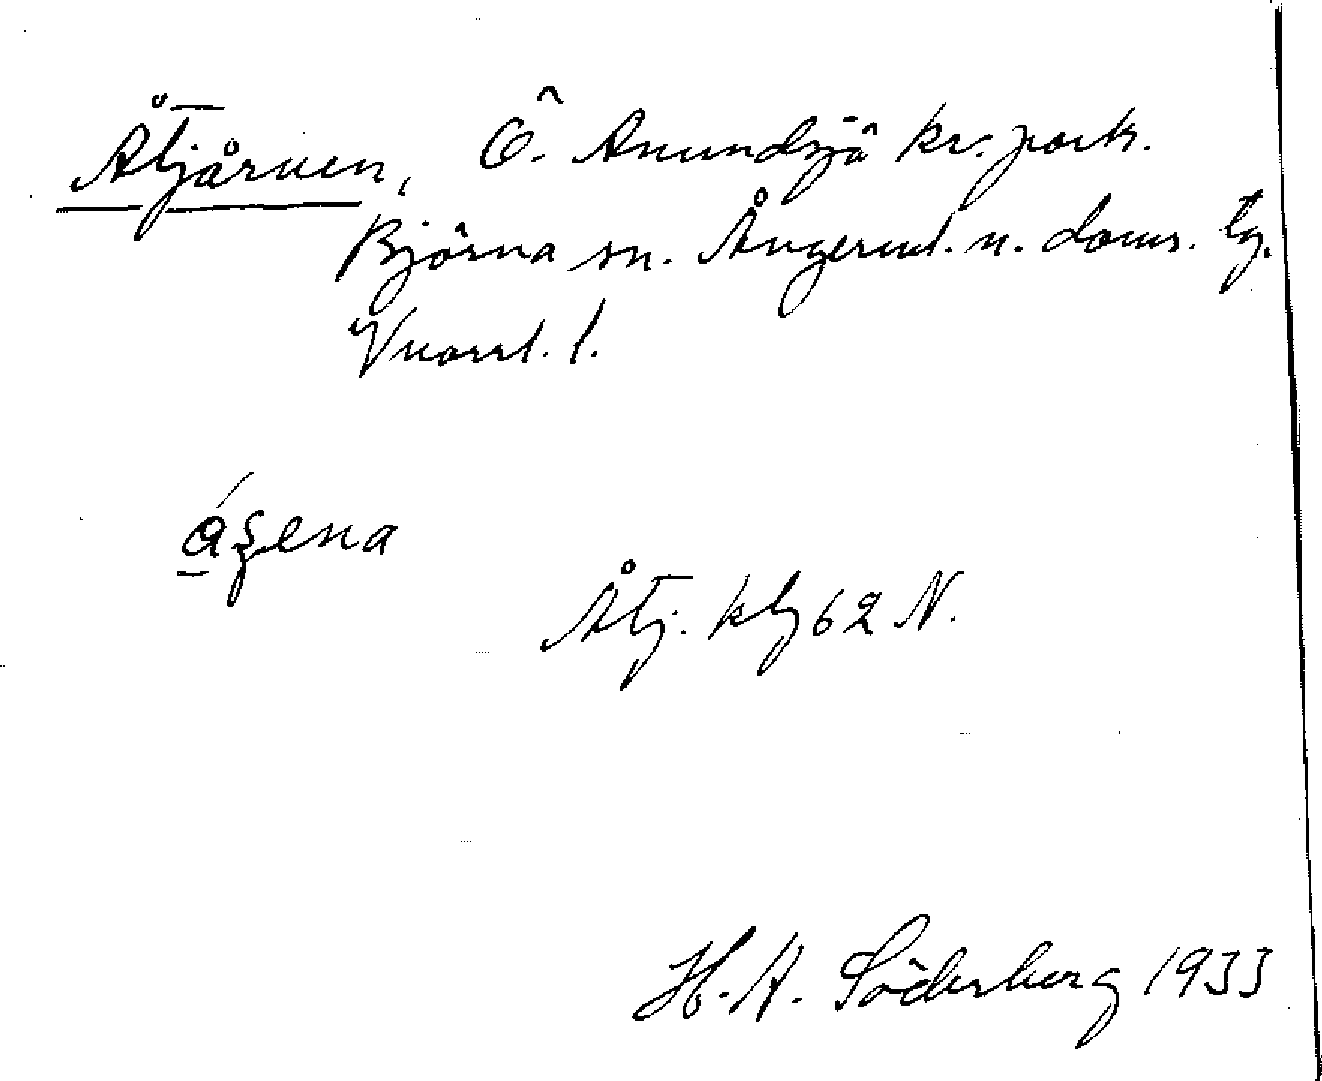 Åtjärnen, Ö. Anundsjö kr. park.
Björna sn. Ångerml. n. doms. tg.
Vnorrl. l.
Åtj. kbg 62 N.
H. A. Söderberg 1933